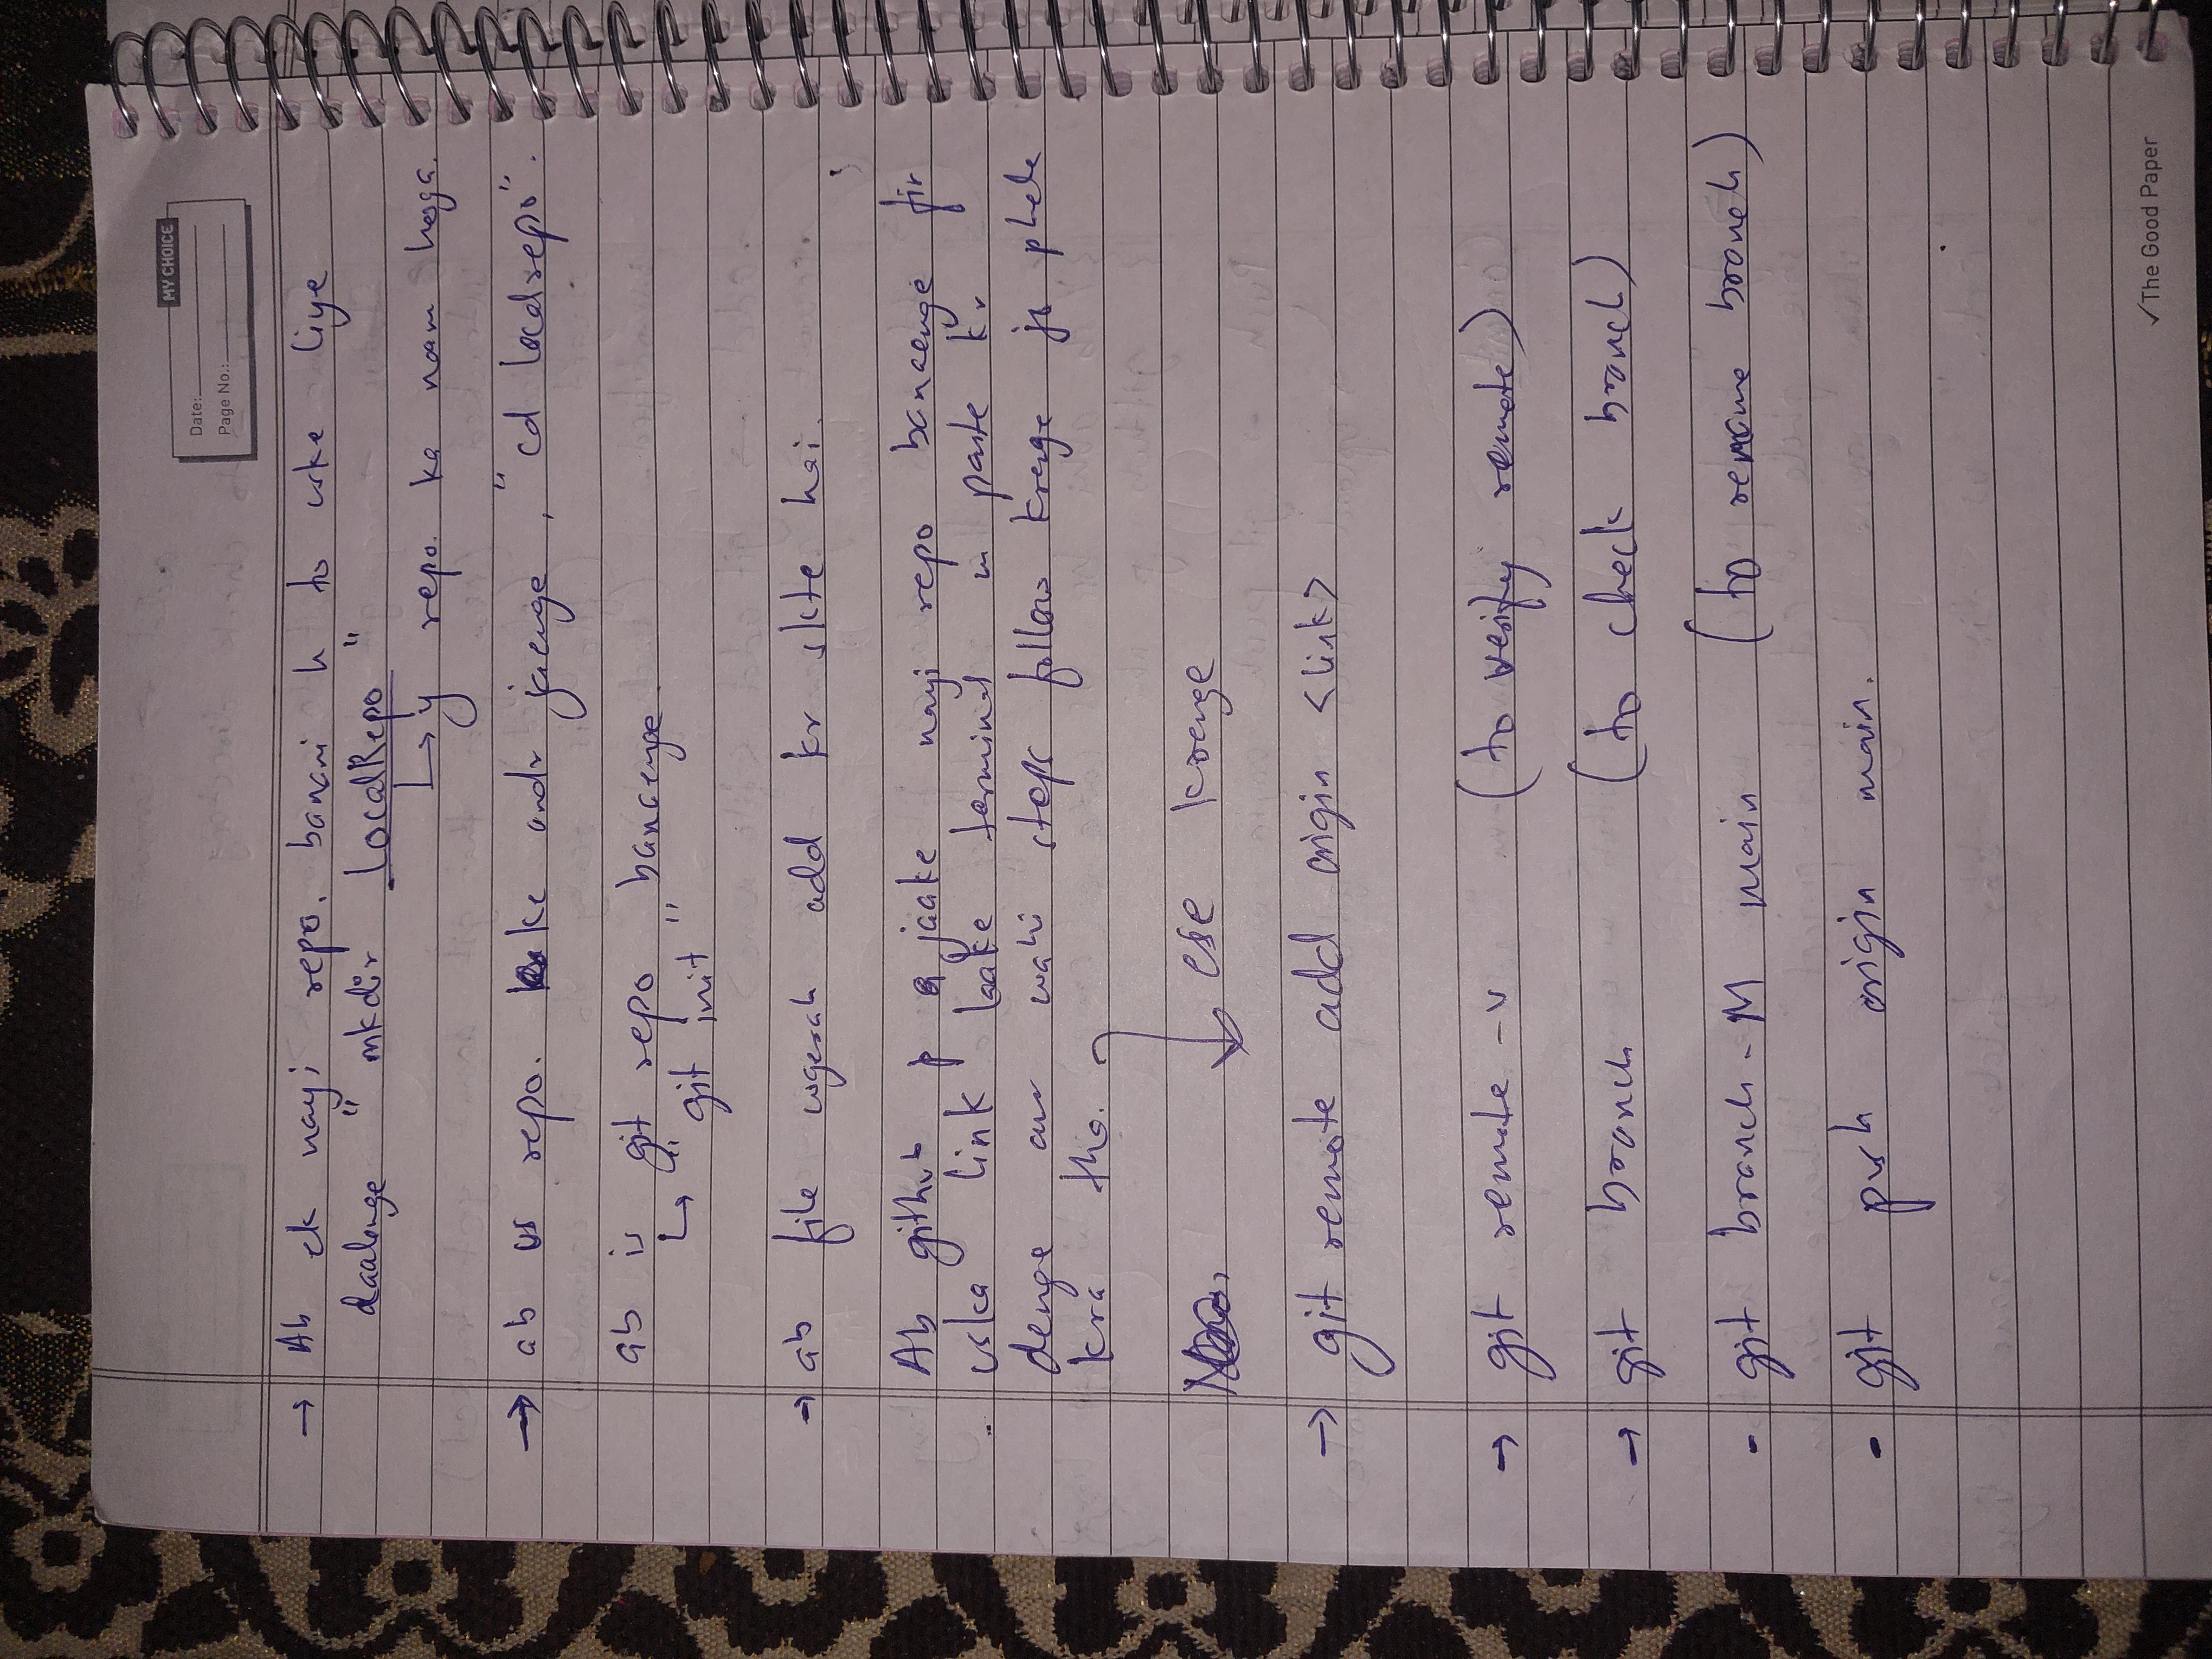 MY CHOICE
Date:
Page No.:
→ Ab ek nayi repo. banani h to uske liye
daalenge " mkdir LocalRepo "
↳ y repo. ka naam hoga.
→ ab us repo. ke andr jaenge , "cd localrepo".
ab is git repo banaenge
↳ " git init "
→ ab file wgerah add kr skte hai.
Ab github p jaake nayi repo banaenge fir
uska link laake terminal m paste kr
denge aur wahi steps follow krenge jo phele
kra tha.
ese krenge
→ git remote add origin <link>
→ git remote -v (to verify remote)
→ git branch (to check branch)
- git branch -M main (to rename branch)
- git push origin main.
✓The Good Paper